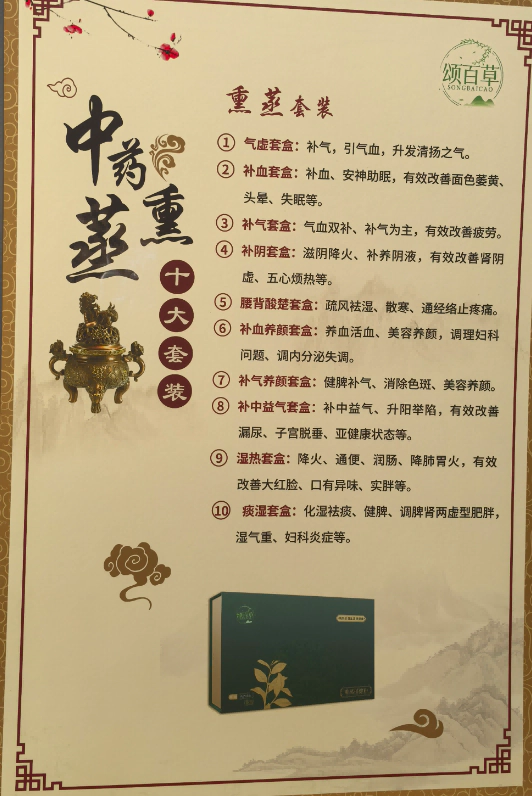 颂百草
SONGBAICAO
中药熏蒸
十大套装
熏蒸套装
① 气虚套盒：补气，引气血，升发清扬之气。
② 补血套盒：补血、安神助眠，有效改善面色萎黄、
头晕、失眠等。
③ 补气套盒：气血双补、补气为主，有效改善疲劳。
④ 补阴套盒：滋阴降火、补养阴液，有效改善肾阴
虚、五心烦热等。
⑤ 腰背酸楚套盒：疏风祛湿、散寒、通经络止疼痛。
⑥ 补血养颜套盒：养血活血、美容养颜，调理妇科
问题、调内分泌失调。
⑦ 补气养颜套盒：健脾补气、消除色斑、美容养颜。
⑧ 补中益气套盒：补中益气、升阳举陷，有效改善
漏尿、子宫脱垂、亚健康状态等。
⑨ 湿热套盒：降火、通便、润肠、降肺胃火，有效
改善大红脸、口有异味、实胖等。
⑩ 痰湿套盒：化湿祛痰、健脾、调脾肾两虚型肥胖，
湿气重、妇科炎症等。